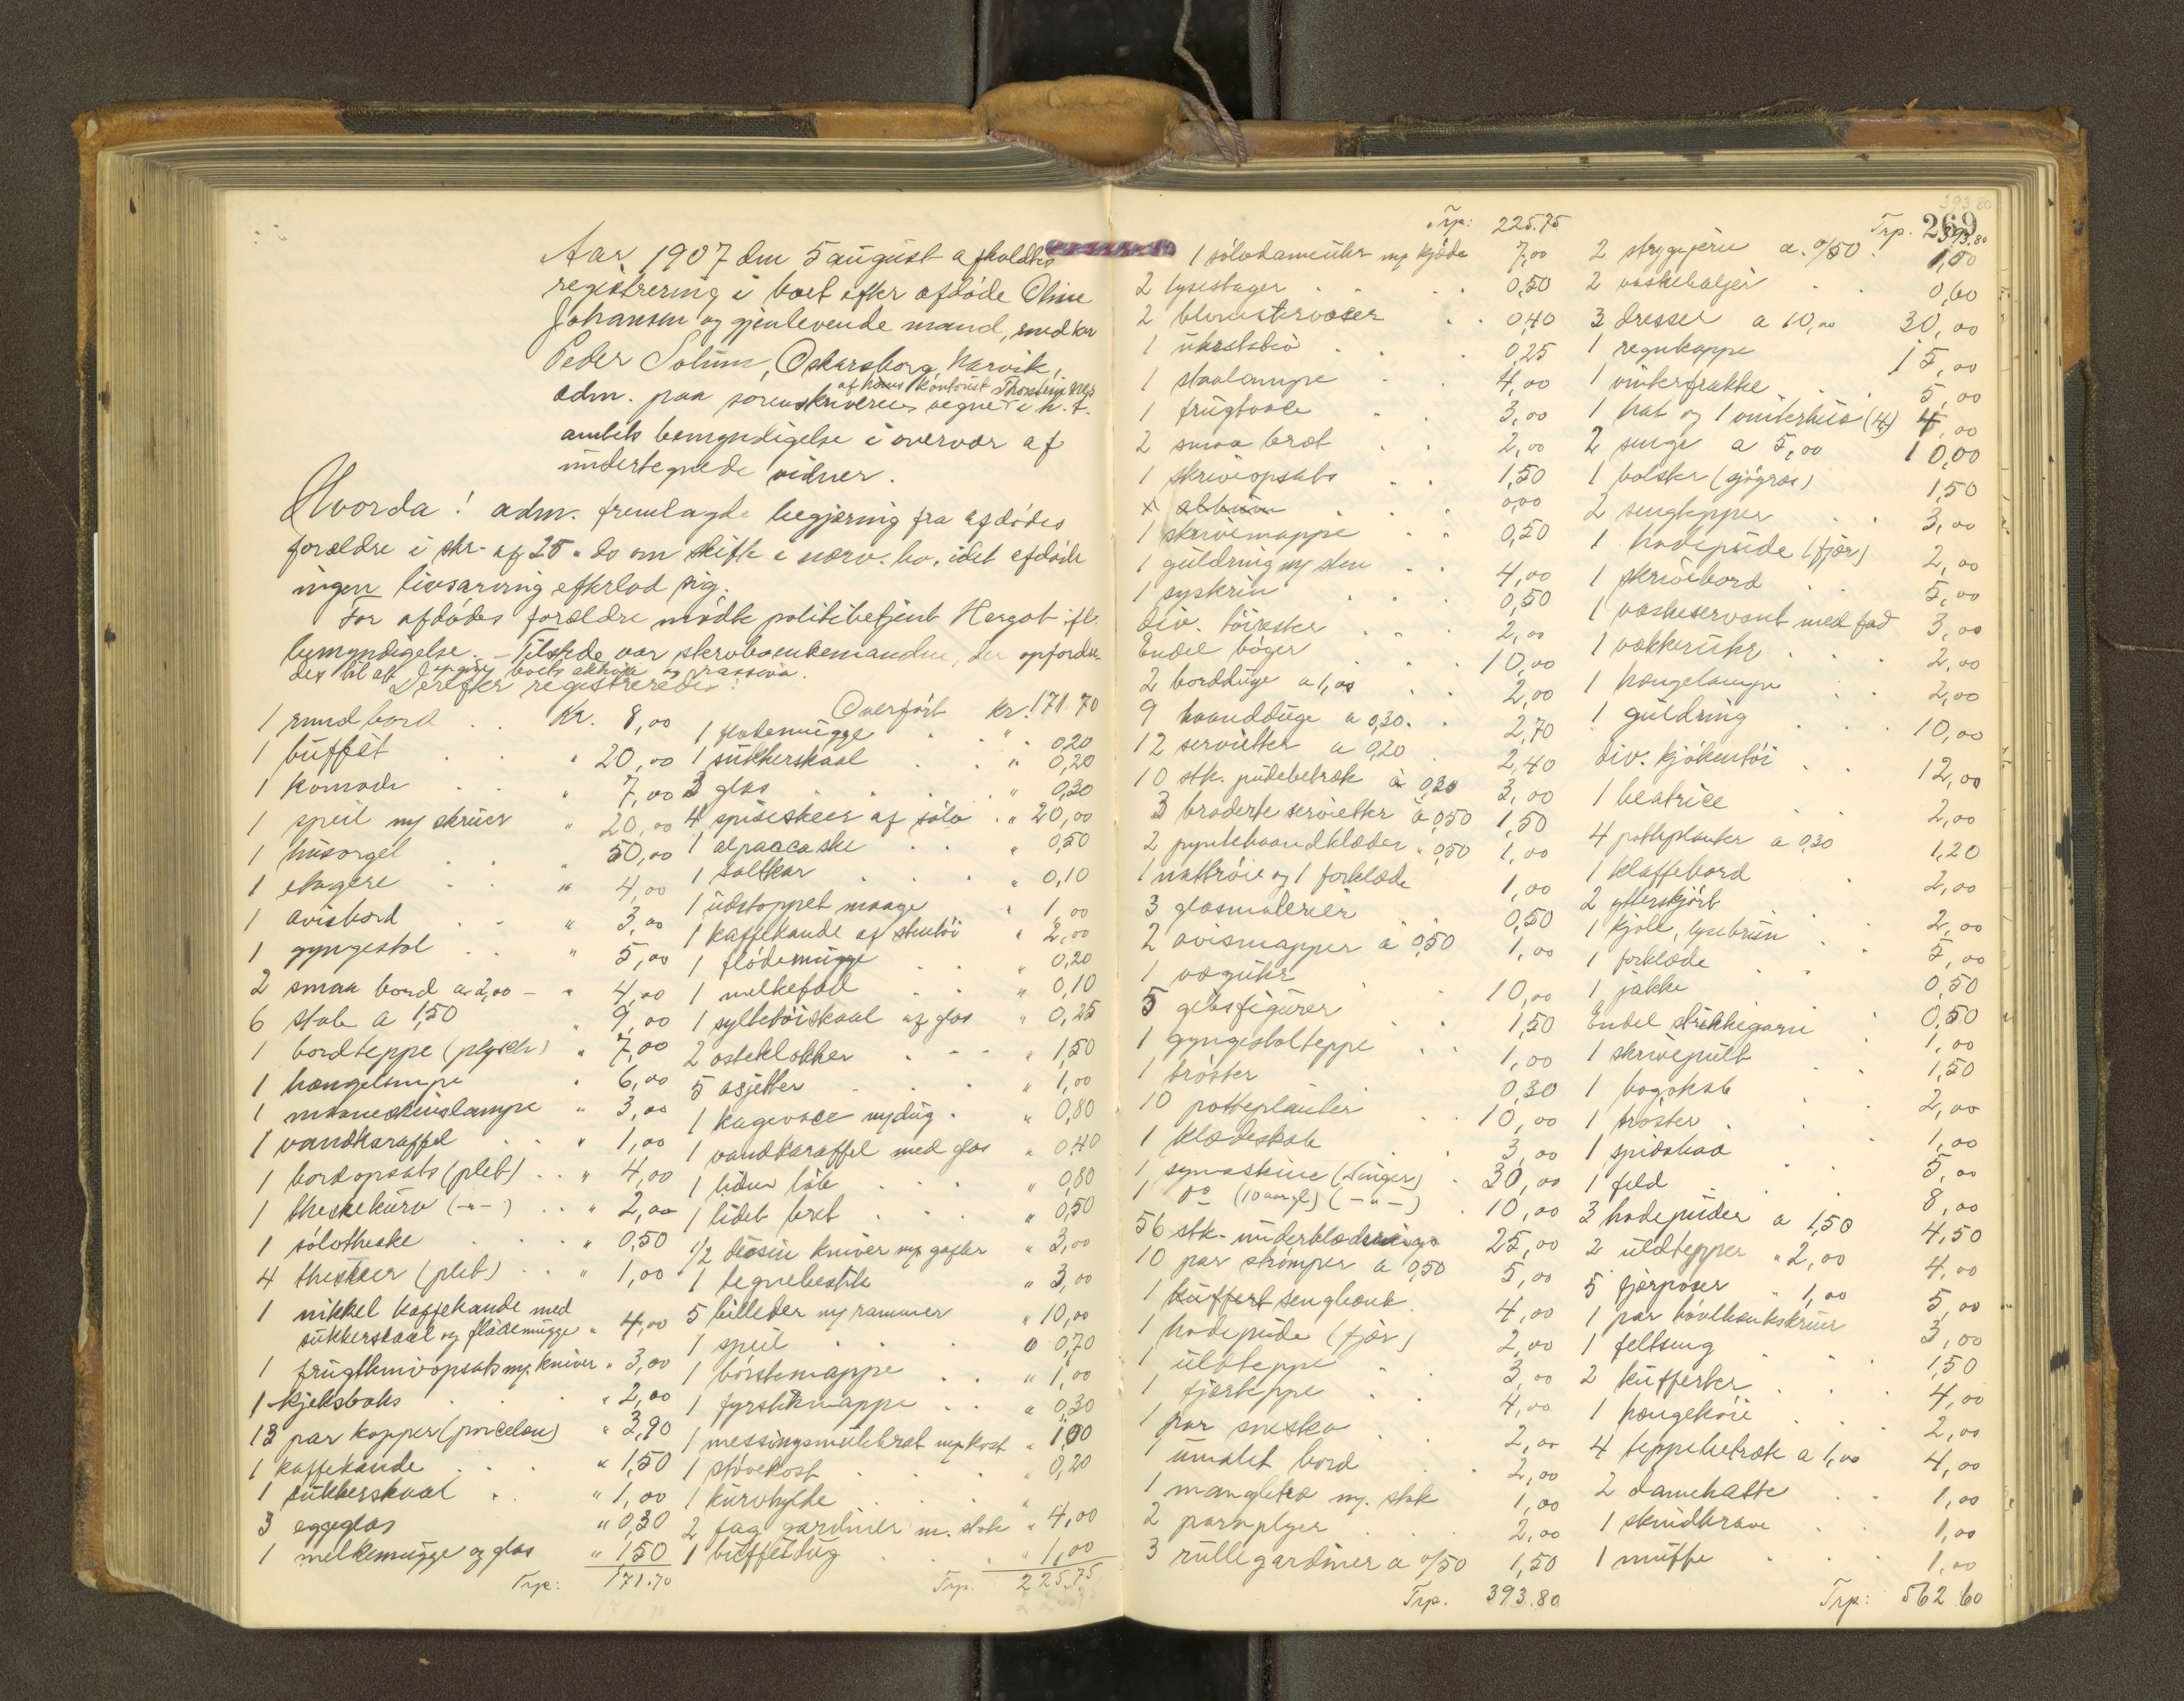 Aar 1907 den 5 august afholdtes
registrering i boet efter afdøde Oline
Johansen og gjenlevende mand, snedker
Peder Solum, Oskarsborg, Narvik,
adm. paa sorenskriverens vegne af hans kontorist Thorstein Næs i h. t.
ambets bemyndigelse i overvær af
undertegnede vidner.
Hvorda! adm. fremlagde begjæring fra afdødes
forældre i skr. af 25. do om skifte i nærv. bo, idet afdøde
ingen livsarving efterlod sig.
For afdødes forældre mødte politibetjent Hergot ifl.
bemyndigelse. – Tilstede var enkemanden, der opfordre-
des til at opgive boets aktiva og passiva.
Derefter registreredes:
1 rund bord . . Kr. 8,00
1 buffét . . " 20,00
1 komode . . " 7,00
1 speil m/ skruer " 20,00
1 husorgel . . " 50,00
1 etagere . . " 4,00
1 avisbord . . " 3,00
1 gyngestol . . " 5,00
2 smaa bord a 2,00 – " 4,00
6 stole a 1,50 " 9,00
1 bordteppe (plysch) " 7,00
1 hængelampe " 6,00
1 maaneskinslampe " 3,00
1 vandkaraffel . . " 1,00
1 bordopsats (plet) . . " 4,00
1 theskekurv (–"–) . . " 2,00
1 sølvtheske . . " 0,50
4 theskeer (plet) . . " 1,00
1 nikkel kaffekande med
sukkerskaal og flødemugge " 4,00
1 frugtknivopsats m/ kniver " 3,00
1 kjeksboks . . " 2,00
13 par kopper (porcelæn) " 3,90
1 kaffekande . . " 1,50
1 sukkerskaal . . " 1,00
3 eggeglas " 0,30
1 melkemugge og glas " 1,50
Trp: 171.70
Overført kr. 171.70
1 flødemugge . . " 0,20
1 sukkerskaal . . " 0,20
3 glas . . " 0,30
4 spiseskeer af sølv . " 20,00
1 alpaccaske . . " 0,50
1 saltkar . . " 0,10
1 udstoppet maage " 1,00
1 kaffekande af stentøi " 2,00
1 flødemugge . . " 0,20
1 melkefad . . " 0,10
1 syltetøiskaal af glas " 0,25
2 osteklokker . . " 1,50
5 asjetter . . " 1,00
1 kagevase m/ dug . " 0,80
1 vandkaraffel med glas " 0,40
1 liden løb . . " 0,80
1 lidet bret . . " 0,50
1/2 dusin kniver m/ gafler " 3,00
1 tegnebestik " 3,00
5 billeder m/ rammer " 10,00
1 speil . . " 0,70
1 børstemappe . . " 1,00
1 fyrstikmappe . . " 0,30
1 messingsmulebret m/ kost " 1,00
1 støvekost . . " 0,20
1 kurvhylde . . "
2 fag gardiner m. stok " 4,00
1 buffétdug . . " 1,00
Trp. 225.75
Trp: 225.75
1 sølvdameuhr m/ kjæde 7,00
2 lysestager . . 0,50
2 blomstervaser . . 0,40
1 uhrstativ . . 0,25
1 staalampe . . 4,00
1 frugtvase . . 3,00
2 smaa bret . . 2,00
1 skriveopsats . . 1,50
x album . . 0,00
1 skrivemappe . . 0,50
1 guldring m/ sten . . 4,00
1 syskrin . . 0,50
div. tøirester . . 2,00
Endel bøger . . 10,00
2 bordduge a 1,00 . . 2,00
9 haandduge a 0,30 . . 2,70
12 servietter a 0,20 . 2,40
10 stk. pudebetræk à 0,30 3,00
3 broderte servietter à 0,50 1,50
2 pyntehaandklæder " 0,50 1,00
1 nattrøie og 1 forklæde 1,00
3 glasmalerier . . 0,50
2 avismapper à 0,50 1,00
1 væguhr . . 10,00
5 gibsfigurer . . 1,50
1 gyngestolteppe . . 1,00
1 trøster . . 0,30
10 potteplanter . . 10,00
1 klædeskab . . 3,00
1 symaskine (Singer) . 30,00
1 do (10 aar gl.) (–"–) . 10,00
56 stk. underklæder 25,00
10 par strømper a 0,50 5,00
1 kuffert sengbænk . 4,00
1 hodepude (fjær) 2,00
1 uldteppe . . 3,00
1 fjærteppe . . 4,00
1 par snesko . . 2,00
1 umalet bord . . 2,00
1 mangletræ m/ stok 1,00
2 paraplyer . . 2,00
3 rullegardiner a 0/50 1,50
Trp. 393.80
393.80
269
Trp. 393.80
2 strygejern a. 0/50 . 1,50
2 vaskebaljer . . 0,60
3 dresser a 10,00 30,00
1 regnkappe 15,00
1 vinterfrakke . . 5,00
1 hat og 1 vinterhue (4) 4,00
2 senge a 5,00 10,00
1 bolster (sjøgræs) 1,50
2 sengtepper . . 3,00
1 hodepude (fjær) 2,00
1 skrivebord . . 5,00
1 vaskeservant med fad 3,00
1 vækkeruhr . . 2,00
1 hængelampe . . 2,00
1 guldring . . 10,00
div. kjøkentøi . . 12,00
1 beatrice . . 2,00
4 potteplanter a 0,30 1,20
1 klaffebord . . 2,00
2 ytterskjørt . . 2,00
1 kjole, lysebrun . . 5,00
1 forklæde . . 0,50
1 jakke . . 0,50
Endel strikkegarn . 1,00
1 skrivepult . . 1,50
1 bogskab . . 2,00
1 trøster . . 1,00
1 . . 5,00
1 feld . . 8,00
3 hodepuder a 1,50 4,50
2 uldtepper " 2,00 4,00
5 fjærposer " 1,00 5,00
1 par høvlbænkskruer 3,00
1 feltseng . . 1,50
2 kufferter . . 4,00
1 hængekøie . . 2,00
4 teppebetræk a 1,00 4,00
2 damehatte . . 1,00
1 skindkrave . . 1,00
1 muffe . . 1,00
Trp: 562.60